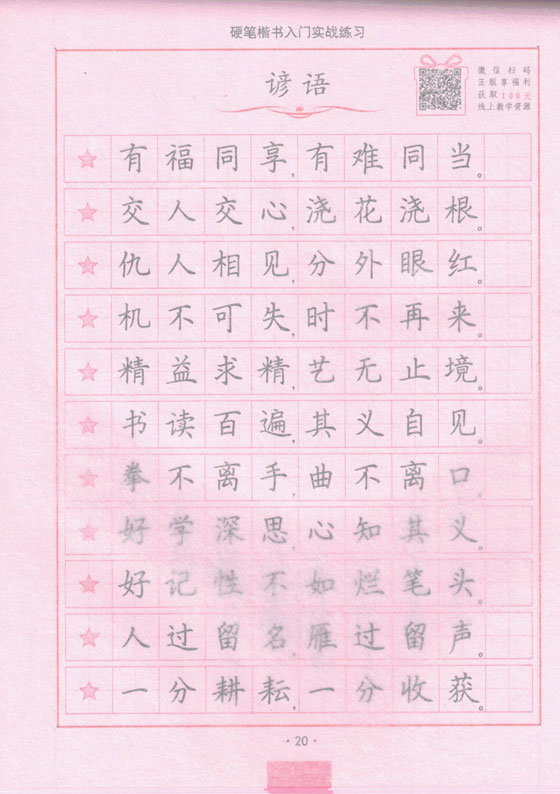 硬笔楷书入门实战练习
谚语
微信扫码
正版享福利
获取100元
线上教学资源
有福同享,有难同当。
交人交心,浇花浇根。
仇人相见,分外眼红。
机不可失,时不再来。
精益求精,艺无止境。
书读百遍,其义自见。
拳不离手,曲不离口。
好学深思,心知其义。
好记性不如烂笔头。
人过留名,雁过留声。
一分耕耘,一分收获。
·20·